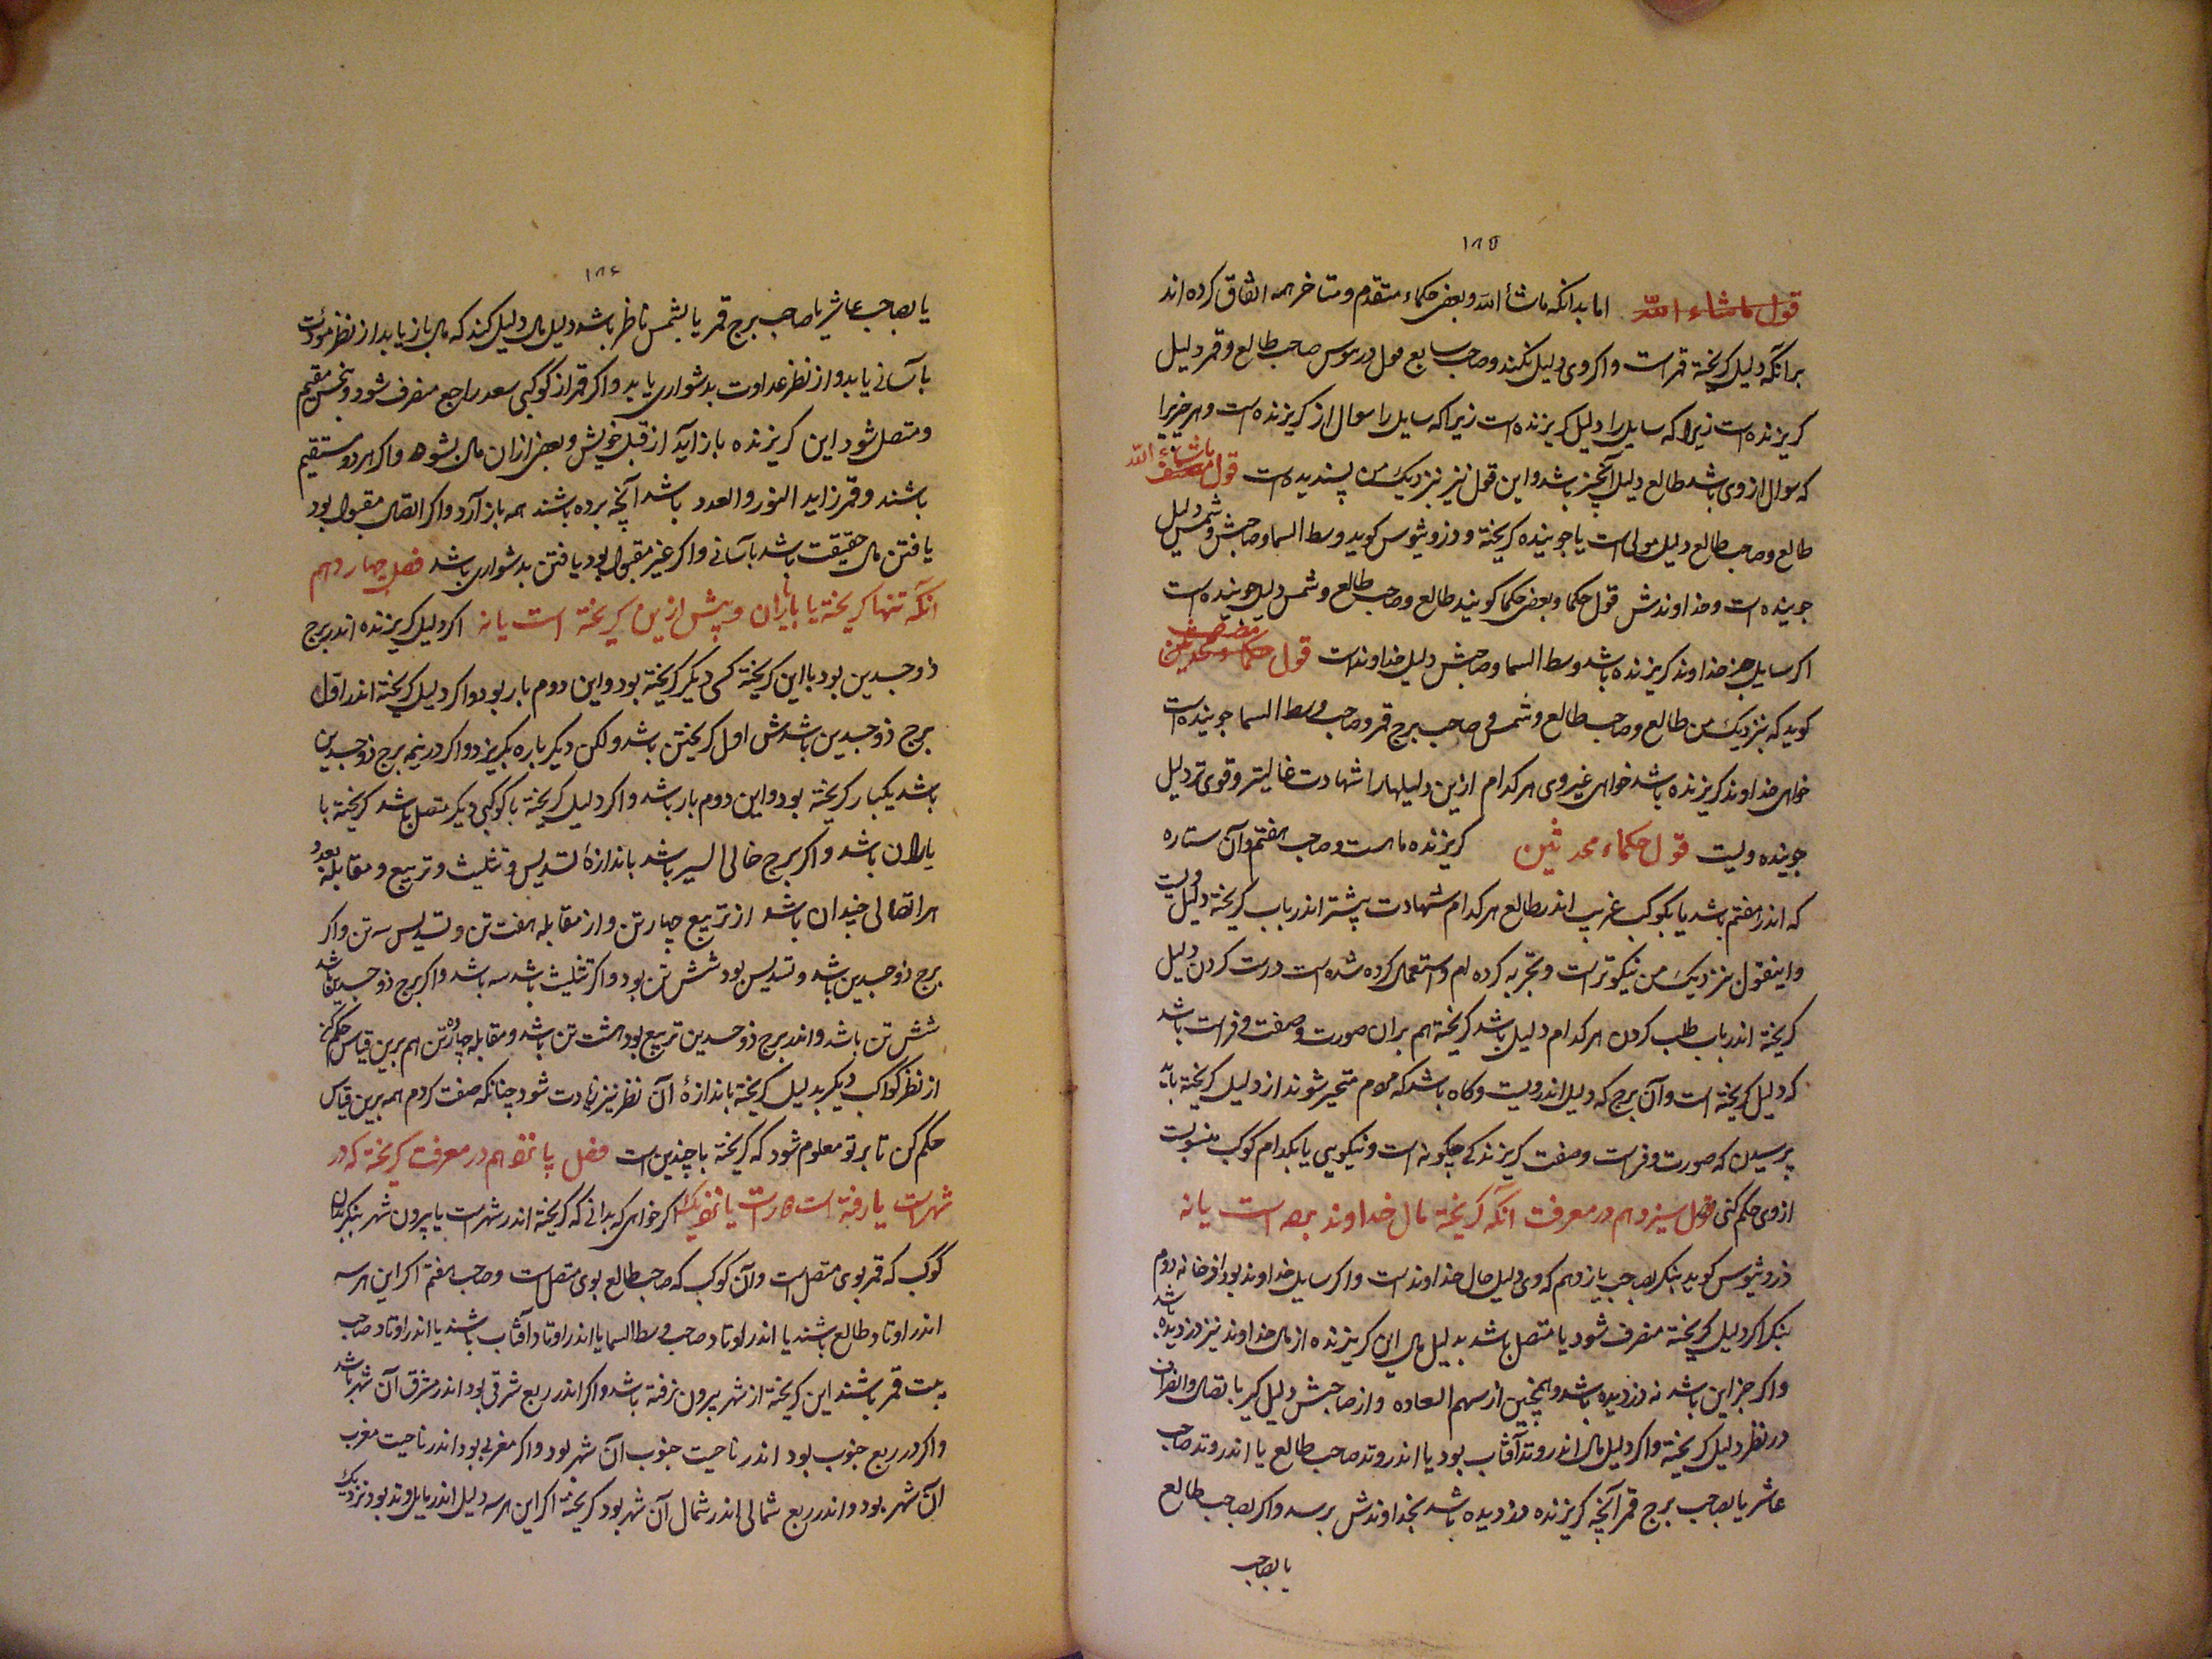 ۱۸۵
قول ماشاء الله اما بدانکه ماشأ الله و بعضی حکماء متقدم و متاخر همه اتفاق کرده اند
برانکه دلیل کریخته قمر است و اکر وی دلیل نکند و صاحب سابع صاحب طالع و قمر دلیل
کریزنده است زیرا که سایل را دلیل کریزنده است زیرا که سایل را سوال از کریزنده است و هر چیزیرا
که سوال ازوی باشد طالع دلیل آنچیز باشد و این قول نیز نزدیک من پسندیده است قول ماشاء الله
طالع و صاحب طالع دلیل مولی است یا جوینده کریخته و ذروثیوس کوید وسط السما و صاحبش و شمس دلیل
جوینده است و خداوندش قول حکما و بعضی حکما کویند طالع و صاحب طالع و شمس دلیل جوینده است
اکر سایل جز خداوند کریزنده باشد وسط السما و صاحبش دلیل خداوند است قول مصنف
کوید که بنزدیک من طالع و صاحب طالع و شمس و صاحب برج قمر و صاحب وسط السما جوینده است
خواهی خداوند کریزنده باشد خواهی غیر وی هر کدام ازین دلیلها را شهادت غالبتر و قوی تر دلیل
جوینده ویست قول حکماء محدثین کریزنده ماه است و صاحب هفتم و آن ستاره
که اندر هفتم باشد یا کوکب غریب اندر طالع هر کدام شهادت بیشتر اندر باب کریخته دلیل ویست
و اینقول بنزدیک من نیکوتر است و تجربه کرده ام و استعمال کرده شده است درست کردن دلیل
کریخته اندر باب طلب کردن هر کدام دلیل باشد کریخته هم بران صورت و صفت و فراست باشد
که دلیل کریخته است و آن برج که دلیل اندرویست و کاه باشد که مردم متحیر شوند از دلیل کریخته باید
پرسیدن که صورت و فراست و صفت کریزندکی چکونه است و نیکو ببین یا بکدام کوکب منسوبست
ازوی حکم کنی فصل سیزدهم در معرفت انکه کریخته مال خداوند برده است یا نه
ذروثیوس کوید بنکر بصاحب یازدهم که وی دلیل مال خداوند است و اکر سایل خداوند بود از خانه دوم
بنکر اکر دلیل کریخته منصرف شود یا متصل باشد بدلیل مال این کریزنده از مال خداوند نیز دزدیده باشد
و اکر جز این باشد نه دزدیده باشد و همچنین از سهم السعاده و از صاحبش دلیل کیر باتصال و انصراف
در نظر دلیل کریخته و اکر دلیل مال اندر وتد آفتاب بود یا اندر وتد صاحب طالع یا اندر وتد صاحب
عاشر یا بصاحب برج قمر آنچه کریزنده دزدیده باشد بخداوندش برسد و اکر بصاحب طالع
یا بصاحب
۱۸۶
یا بصاحب عاشر یا صاحب برج قمر یا بشمس ناظر باشد دلیل مال دلیل کند که مال باز یابد از نظر مودت
باسانی یابد و از نظر عداوت بدشواری یابد و اکر قمر از کوکبی سعد راجع منصرف شود و بنحس مقیم
و متصل شود این کریزنده باز آید از قبل خویش و بعضی ازان مال بشود و اکر هر دو مستقیم
باشند و قمر زاید النور و العدد باشد آنچه برده باشند همه باز آرد و اکر اتصال مقبول بود
یافتن مال حقیقت باشد بآسانی و اکر غیر مقبول بود یافتن بدشواری باشد فصل چهاردهم
انکه تنها کریخته یا بایاران و پیش ازین کریخته است یا نه اکر دلیل کریزنده اندر برج
ذوجسدین بود با این کریخته کسی دیکر کریخته بود و این دوم بار بود و اکر دلیل کریخته اندر اول
برج ذوجسدین باشد اول کریختن باشد ولکن دیکر باره بکریزد و اکر در نیمه برج ذوجسدین
باشد یکبار کریخته بود و این دوم بار باشد و اکر دلیل کریخته با کوکبی دیکر متصل باشد کریخته با
یاران باشد و اکر برج خالی السیر باشد باندازهٔ تسدیس و تثلیث و تربیع و مقابله بعدد
هر اتصالی چندان باشد از تربیع چهار تن و از مقابله هفت تن و تسدیس سه تن و اکر
برج ذوجسدین باشد و تسدیس بود شش تن بود و اکر تثلیث باشد سه باشد و اکر برج ذوجسدین باشد
شش تن باشد و اندر برج ذوجسدین تربیع بود هشت تن باشد و مقابله چهارده تن هم برین قیاس حکم کن
از نظر کواکب دیکر بدلیل کریخته باندازهٔ آن نظر نیز زیادت شود چنانکه صفت کردم همه برین قیاس
حکم کن تا بر تو معلوم شود که کریخته با چندین است فصل پانزدهم در معرفت کریخته که در
شهر است یا رفته است دور است یا نزدیک اکر خواهی که بدانی که کریخته اندر شهر است یا بیرون شهر بنکر بدان
کوکب که قمر بوی متصل است و آن کوکب که صاحب طالع بوی متصل است و صاحب هفتم اکر این هر سه
اندر اوتاد طالع باشند یا اندر اوتاد صاحب وسط السما یا اندر اوتاد آفتاب باشند یا اندر اوتاد صاحب
بیت قمر باشند این کریخته از شهر بیرون نرفته باشد و اکر اندر ربع شرقی بود اندر مشرق آن شهر باشد
و اکر در ربع جنوب بود اندر ناحیت جنوب آن شهر بود و اکر مغربی بود اندر ناحیت مغرب
آن شهر بود و اندر ربع شمالی اندر شمال آن شهر بود کریخته اکر این هر سه دلیل اندر مایل وتد بود نزدیک